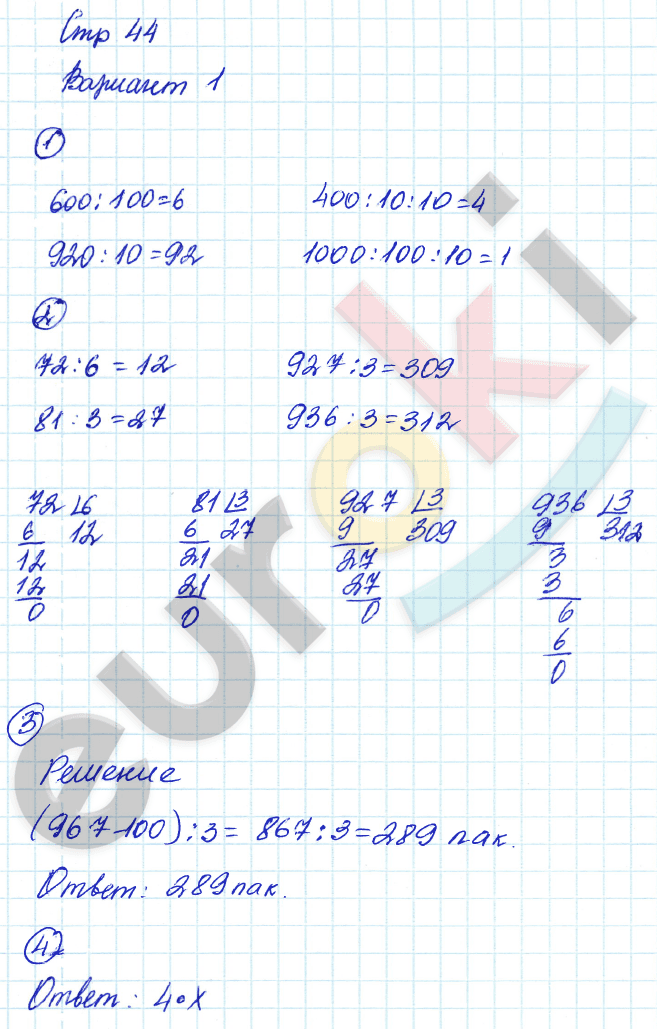 Стр 44
Вариант 1
1
600:100=6 400:10:10=4
920:10=92 1000:100:10=1
2
72:6=12 927:3=309
81:3=27 936:3=312
72 6 81 3 927 3 936 3
6 12 6 27 9 309 9 312
12 21 27 3
12 21 27 3
0 0 0 6
6
0
3
Решение
(967-100):3= 867:3=289 пак.
Ответ: 289 пак.
4
Ответ: 4•x
euroki